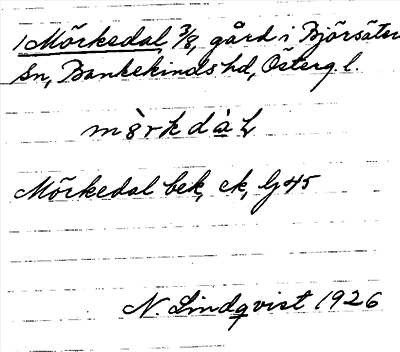 1 Mörkedal 3/8, gård i Björsäter
Sn, Bankekinds hd, Österg. l.
mörkdàL
Mörkedal bek, ek, G 45
N. Lindqvist 1926